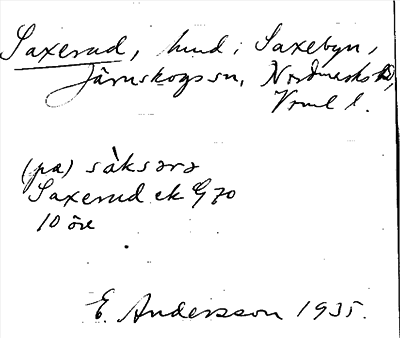 Saxerud, hmd i Saxebyn,
Järnskogs sn, Nordmarks hd,
Vrml l.
(pa) sàksərə
Saxerud ek G 70
10 öre
E. Andersson 1935.